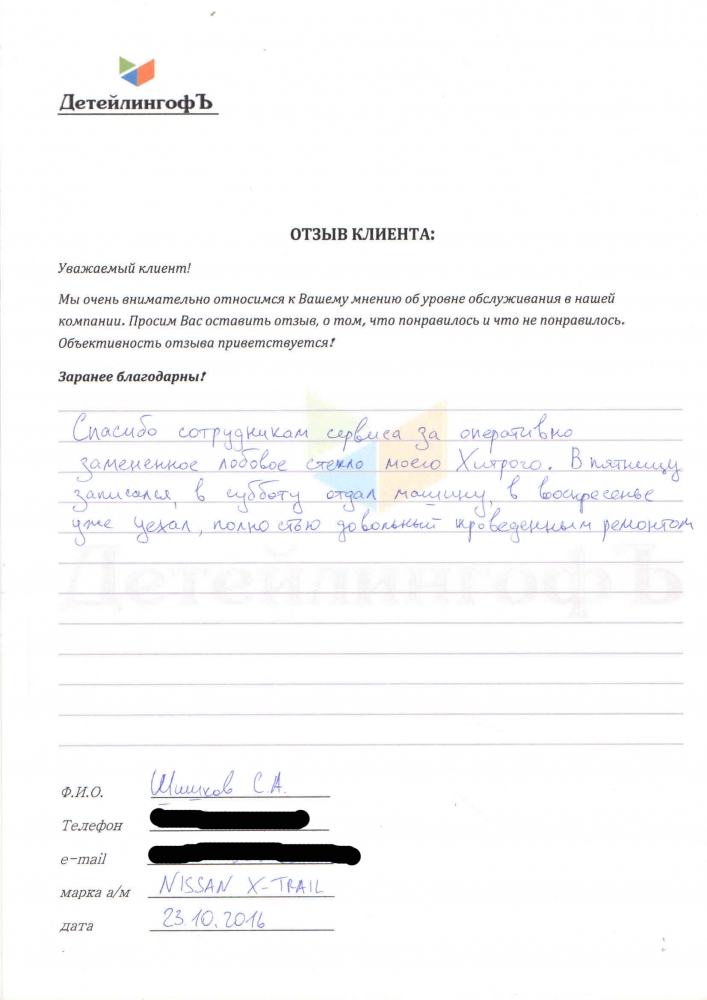 ДетейлингофЪ
ОТЗЫВ КЛИЕНТА:
Уважаемый клиент!
Мы очень внимательно относимся к Вашему мнению об уровне обслуживания в нашей
компании. Просим Вас оставить отзыв, о том, что понравилось и что не понравилось.
Объективность отзыва приветствуется!
Заранее благодарны!
Спасибо сотрудникам сервиса за оперативно
замененное лобовое стекло моего Хитрого. В пятницу
записался, в субботу отдал машину, в воскресенье
уже уехал, полностью довольный проведенным ремонтом
ДетейлингофЪ
Ф.И.О. Шишков С.А.
Телефон
e-mail
марка а/м NISSAN X-TRAIL
дата 23.10.2016